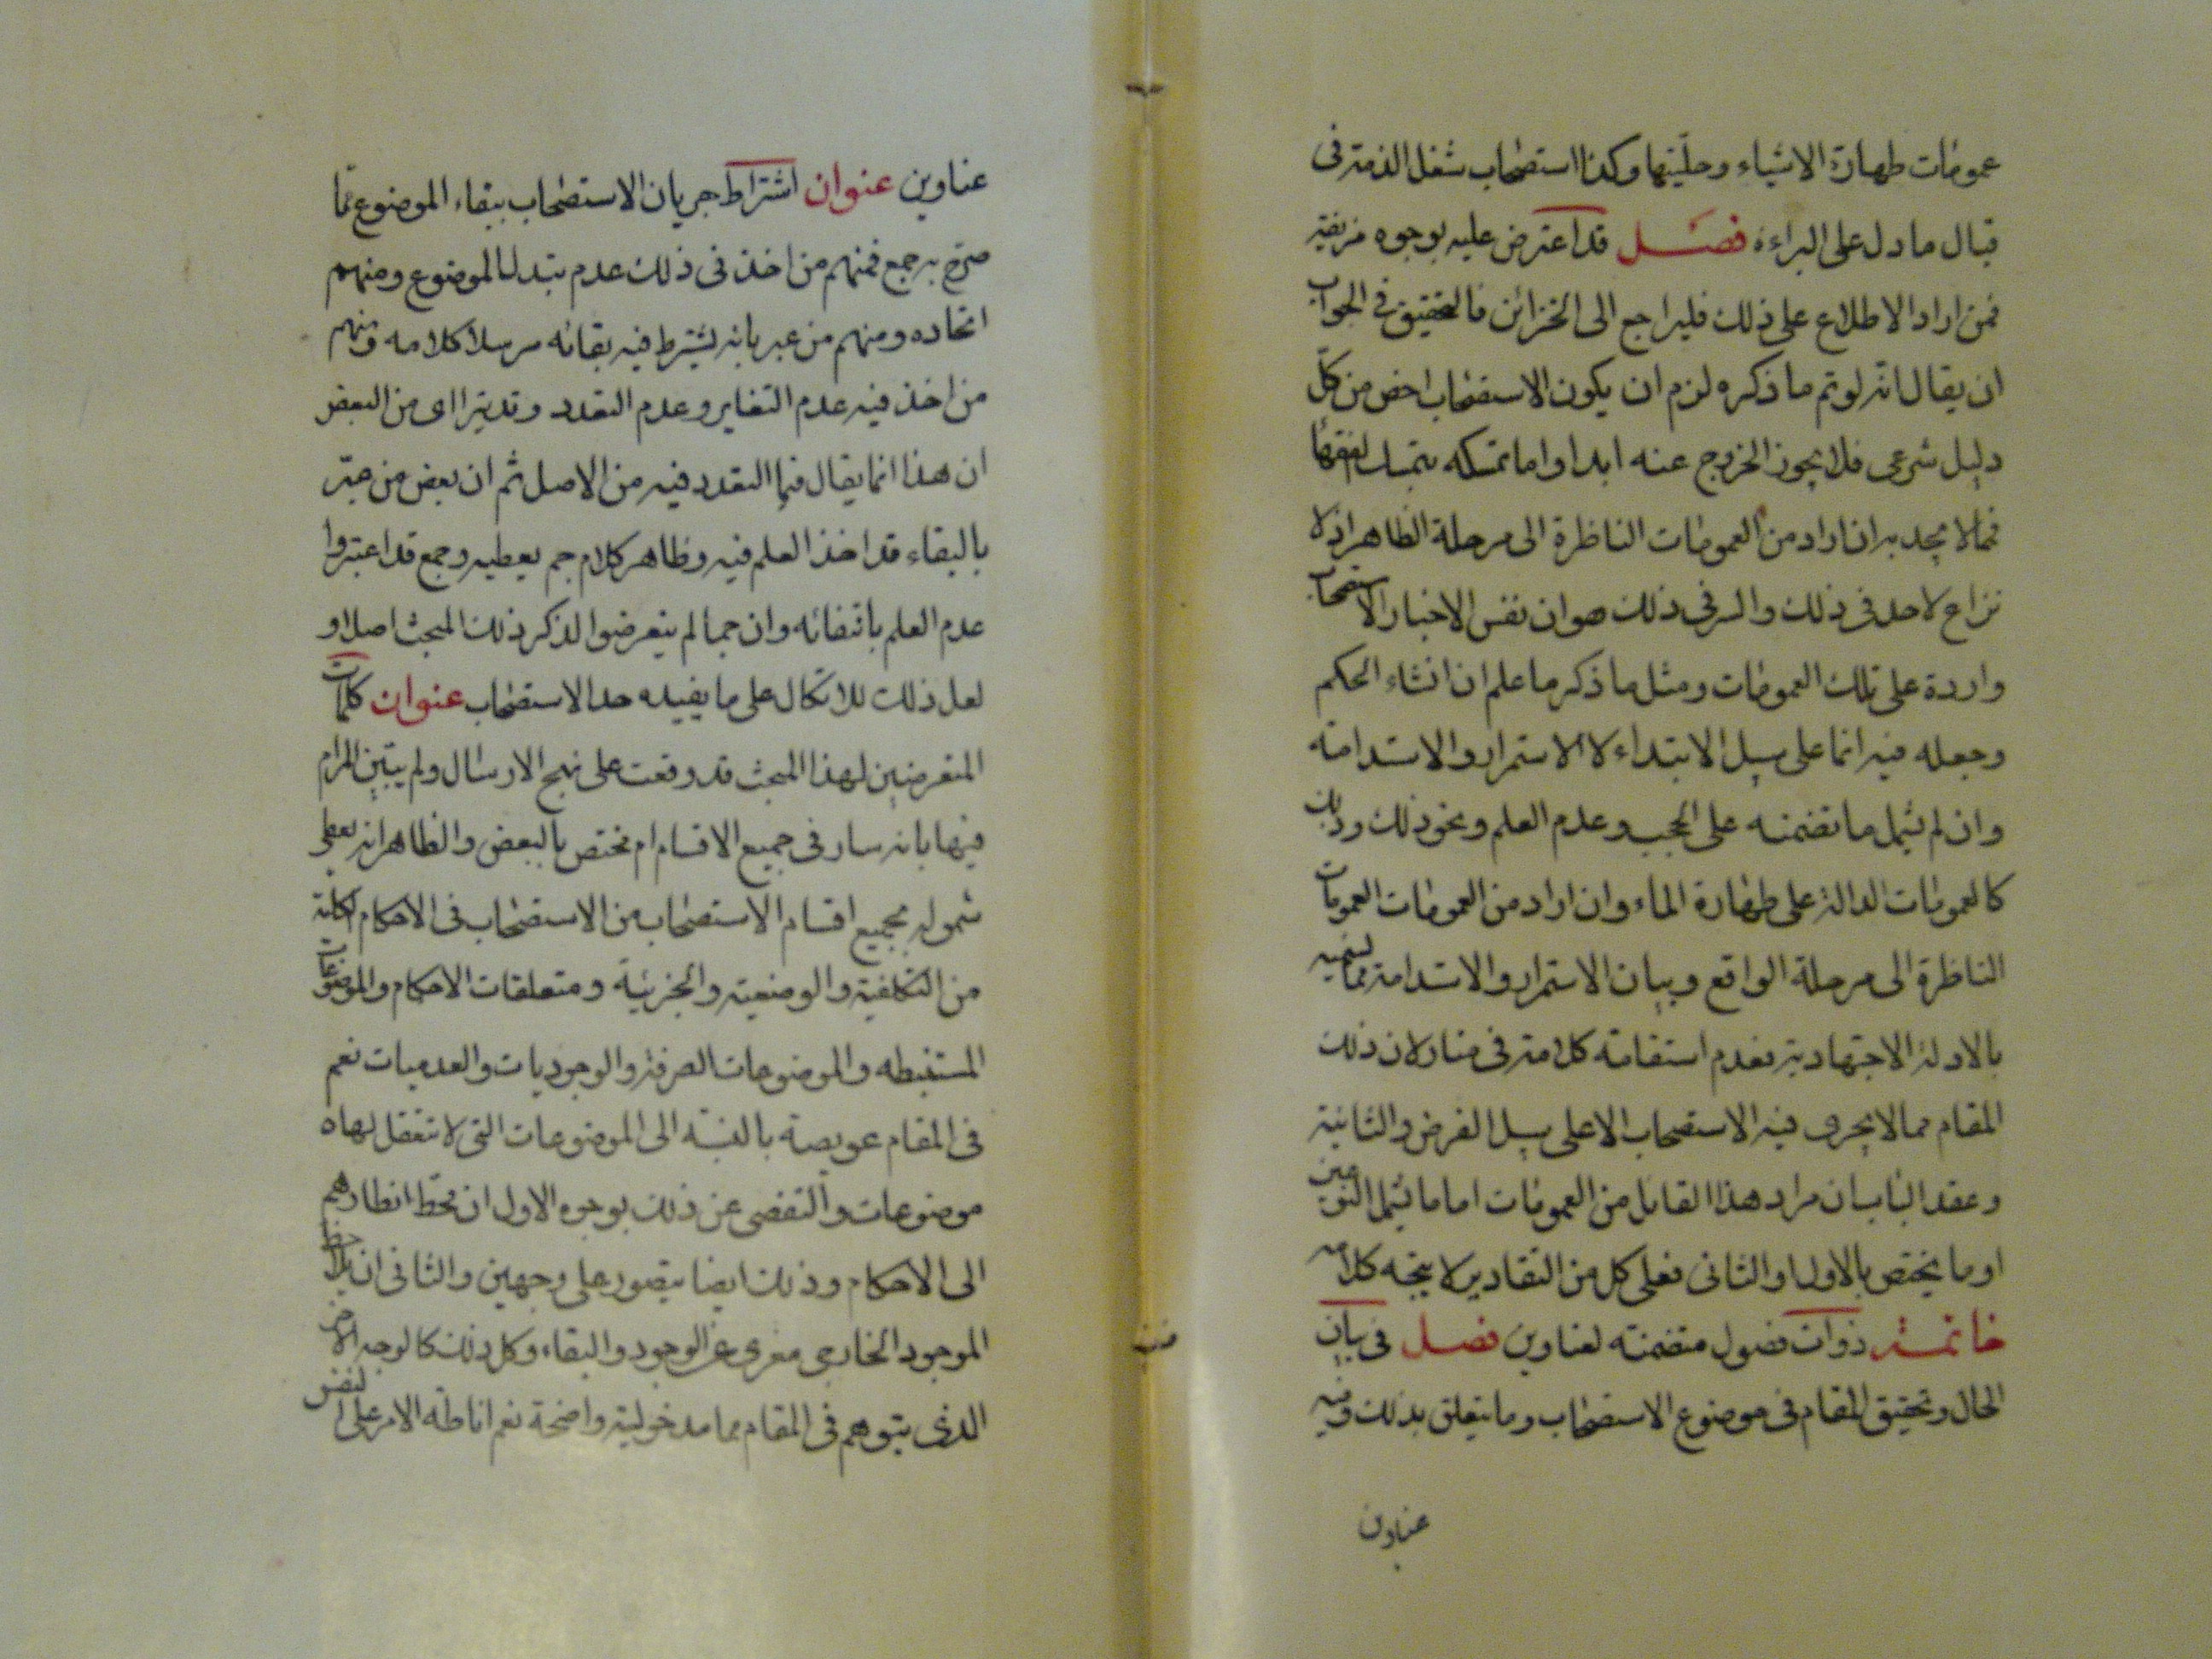 عمومات طهارة الاشياء وحلّيتها وكذا استصحاب شغل الذمة فى
قبال ما دل على البراءة فصل قد اعترض عليه بوجوه مزيفة
فمن اراد الاطلاع على ذلك فليراجع الى الخزائن فالتحقيق فى الجواب
ان يقال انه لو تم ما ذكره لزم ان يكون الاستصحاب اخص من كلّ
دليل شرعى فلا يجوز الخروج عنه ابدا واما تمسكه بتمسك الفقهاء
فمما لا يجد به ان اراد من العمومات الناظرة الى مرحلة الظاهر اذ لا
نزاع لاحد فى ذلك والسر فى ذلك هو ان نفس الاخبار الاستصحاب
واردة على تلك العمومات ومثل ما ذكر ما علم ان انشاء الحكم
وجعله فيه انما على سبيل الابتداء لا الاستمرار والاستدامة
وان لم يشمل ما تضمنه على الحجب وعدم العلم ونحو ذلك وذلك
كالعمومات الدالة على طهارة الماء وان اراد من العمومات العمومات
الناظرة الى مرحلة الواقع وبيان الاستمرار والاستدامة مما نسميه
بالادلة الاجتهادية فعدم استقامة كلامه فى منار لان ذلك
المقام مما لا يجرى فيه الاستصحاب الا على سبيل الفرض والثانية
وعقد الباب ان مراد هذا القابل من العمومات اما ما يشمل النوعين
او ما يختص بالاول او الثانى فعلى كل من التقادير لا يتجه كلامه
خاتمة ذوات فصول متضمنه لعناوين فصل فى بيان
الحال وتحقيق المقام فى موضوع الاستصحاب وما يتعلق بذلك وفيه
عناوين
عناوين عنوان اشتراط جريان الاستصحاب ببقاء الموضوع مما
صرّح به جمع فمنهم من اخذ فى ذلك عدم تبدل الموضوع ومنهم
اتحاده ومنهم من عبر بانه يشترط فيه بقائه مرسلا كلامه ومنهم
من اخذ فيه عدم التغاير وعدم التعدد وقد يتراای من البعض
ان هذا انما يقال فيما التعدد فيه من الاصل ثم ان بعض من عبّر
بالبقاء قد اخذ العلم فيه وظاهر كلام جم يعطيه وجمع قد اعتبروا
عدم العلم بانتفائه وان جما لم يتعرضوا لذكر ذلك المبحث اصلا و
لعل ذلك للاتكال على ما يفيده حد الاستصحاب عنوان كلمات
المتعرضين لهذا المبحث قد وقعت على نهج الارسال ولم يتبين المرام
فيها بانه سار فى جميع الاقسام ام مختص بالبعض والظاهر انه يعطى
شموله بجميع اقسام الاستصحاب من الاستصحاب فى الاحكام الكلية
من التكلفية والوضعية والجزئية ومتعلقات الاحكام والموضوعات
المستنبطه والموضوعات الصرفة والوجوديات والعدميات نعم
فى المقام عويصة بالنسبة الى الموضوعات التى لا تتعقل لها
موضوعات والتفصى عن ذلك بوجوه الاول ان محط انظارهم
الى الاحكام وذلك ايضا يتصور على وجهين والثانى ان يلاحظ
الموجود الخارجى معرى عن الوجود والبقاء وكل ذلك كالوجه الاخر
الذى يتوهم فى المقام مما مدخوليته واضحة نعم اناطة الامر على النفس